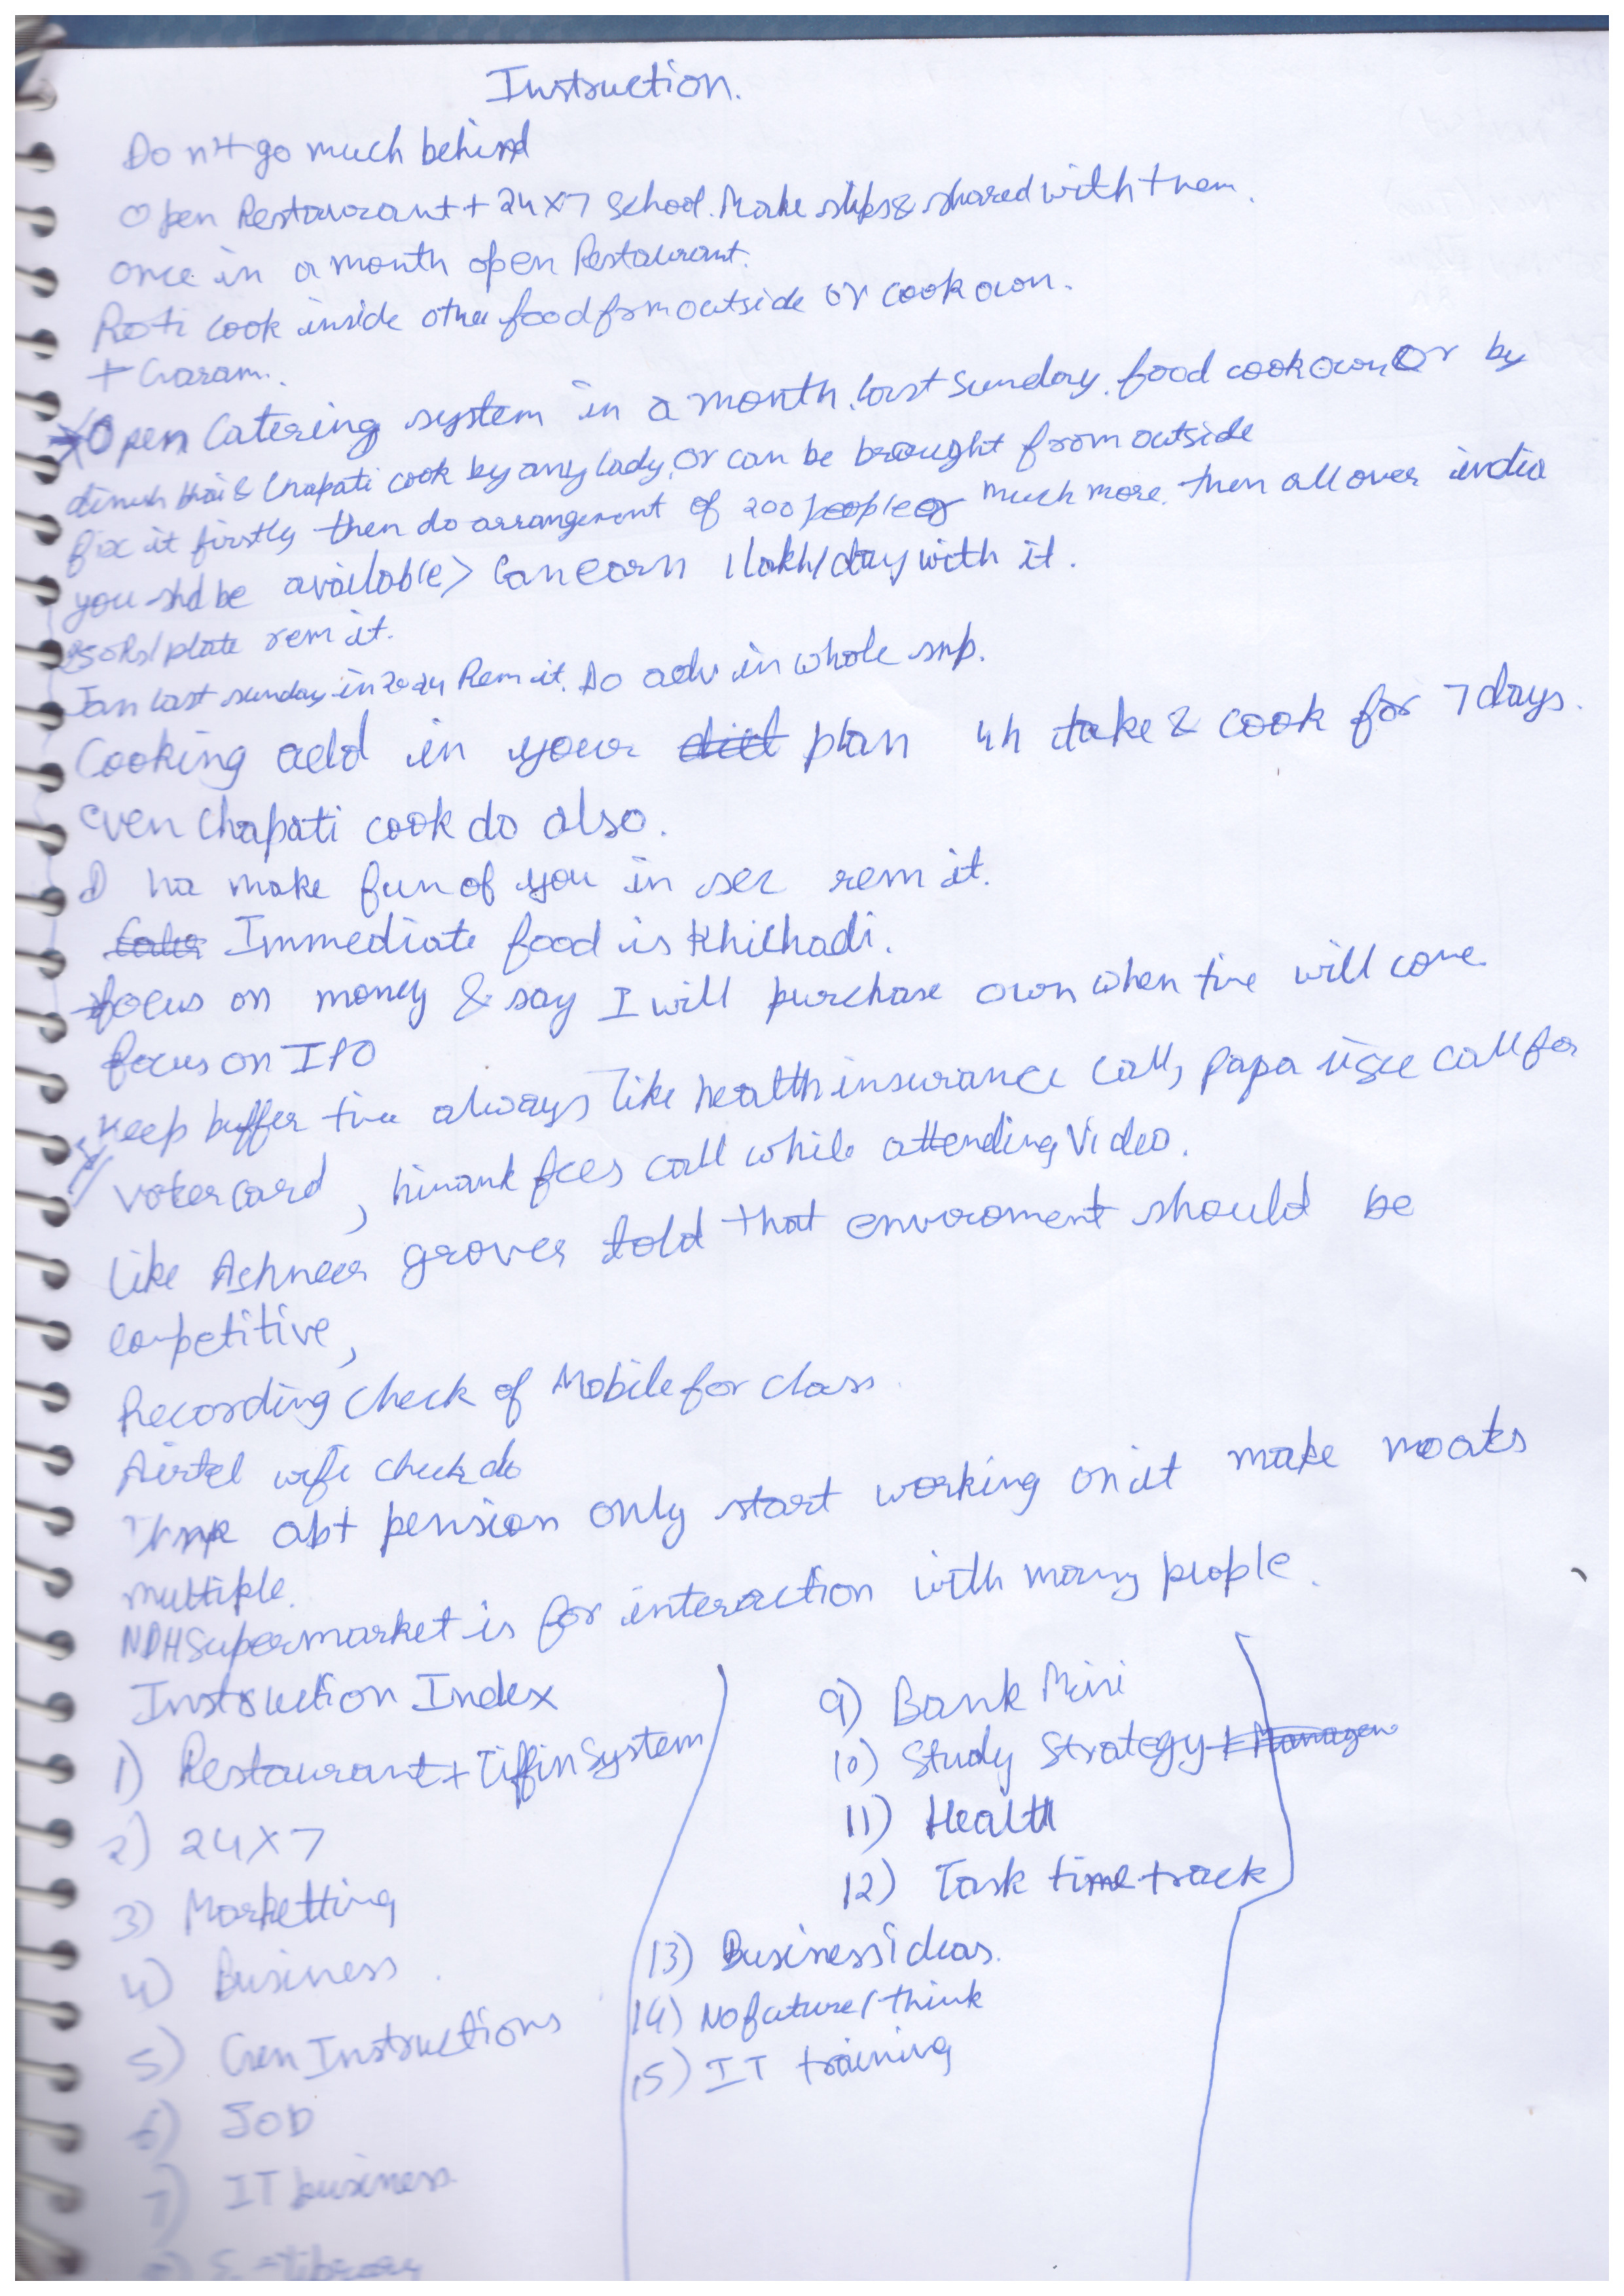 Instruction.
Don't go much behind
Open Restaurant + 24x7 School. Make slips & shared with them.
once in a month open Restaurant.
Roti cook inside other food from outside or cook own.
+ Garam.
Open Catering system in a month. last Sunday. food cook own or by
dinesh bhai & Chapati cook by any lady, or can be brought from outside
fix it firstly then do arrangement of 200 people or much more. then all over india
you shd be available > Can earn 1 lakh/day with it.
250Rs/plate rem it.
Jan last sunday in 2024 Rem it. Do adv in whole snp.
Cooking add in your diet plan 4h take & cook for 7 days.
even Chapati cook do also.
D na make fun of you in sec rem it.
Immediate food is Khichadi.
focus on money & say I will purchase own when time will come.
focus on IPO
Keep buffer time always like health insurance call, papa call for
voter card, fees call while attending Video.
like Ashneer grover told that enviroment should be
Competitive,
Recording check of Mobile for class.
Airtel wifi check do
Think abt pension only start working on it make moats
multiple.
NDH Supermarket is for interaction with many people.
Instruction Index
1) Restaurant + Tiffin System
2) 24x7
3) Marketting
4) Business.
5) Gen Instructions
6) JOB
7) IT business
8) E-library
9) Bank Mini
10) Study Strategy + Managen
11) Health
12) Task time track
13) Business ideas.
14) No future/think
15) IT training